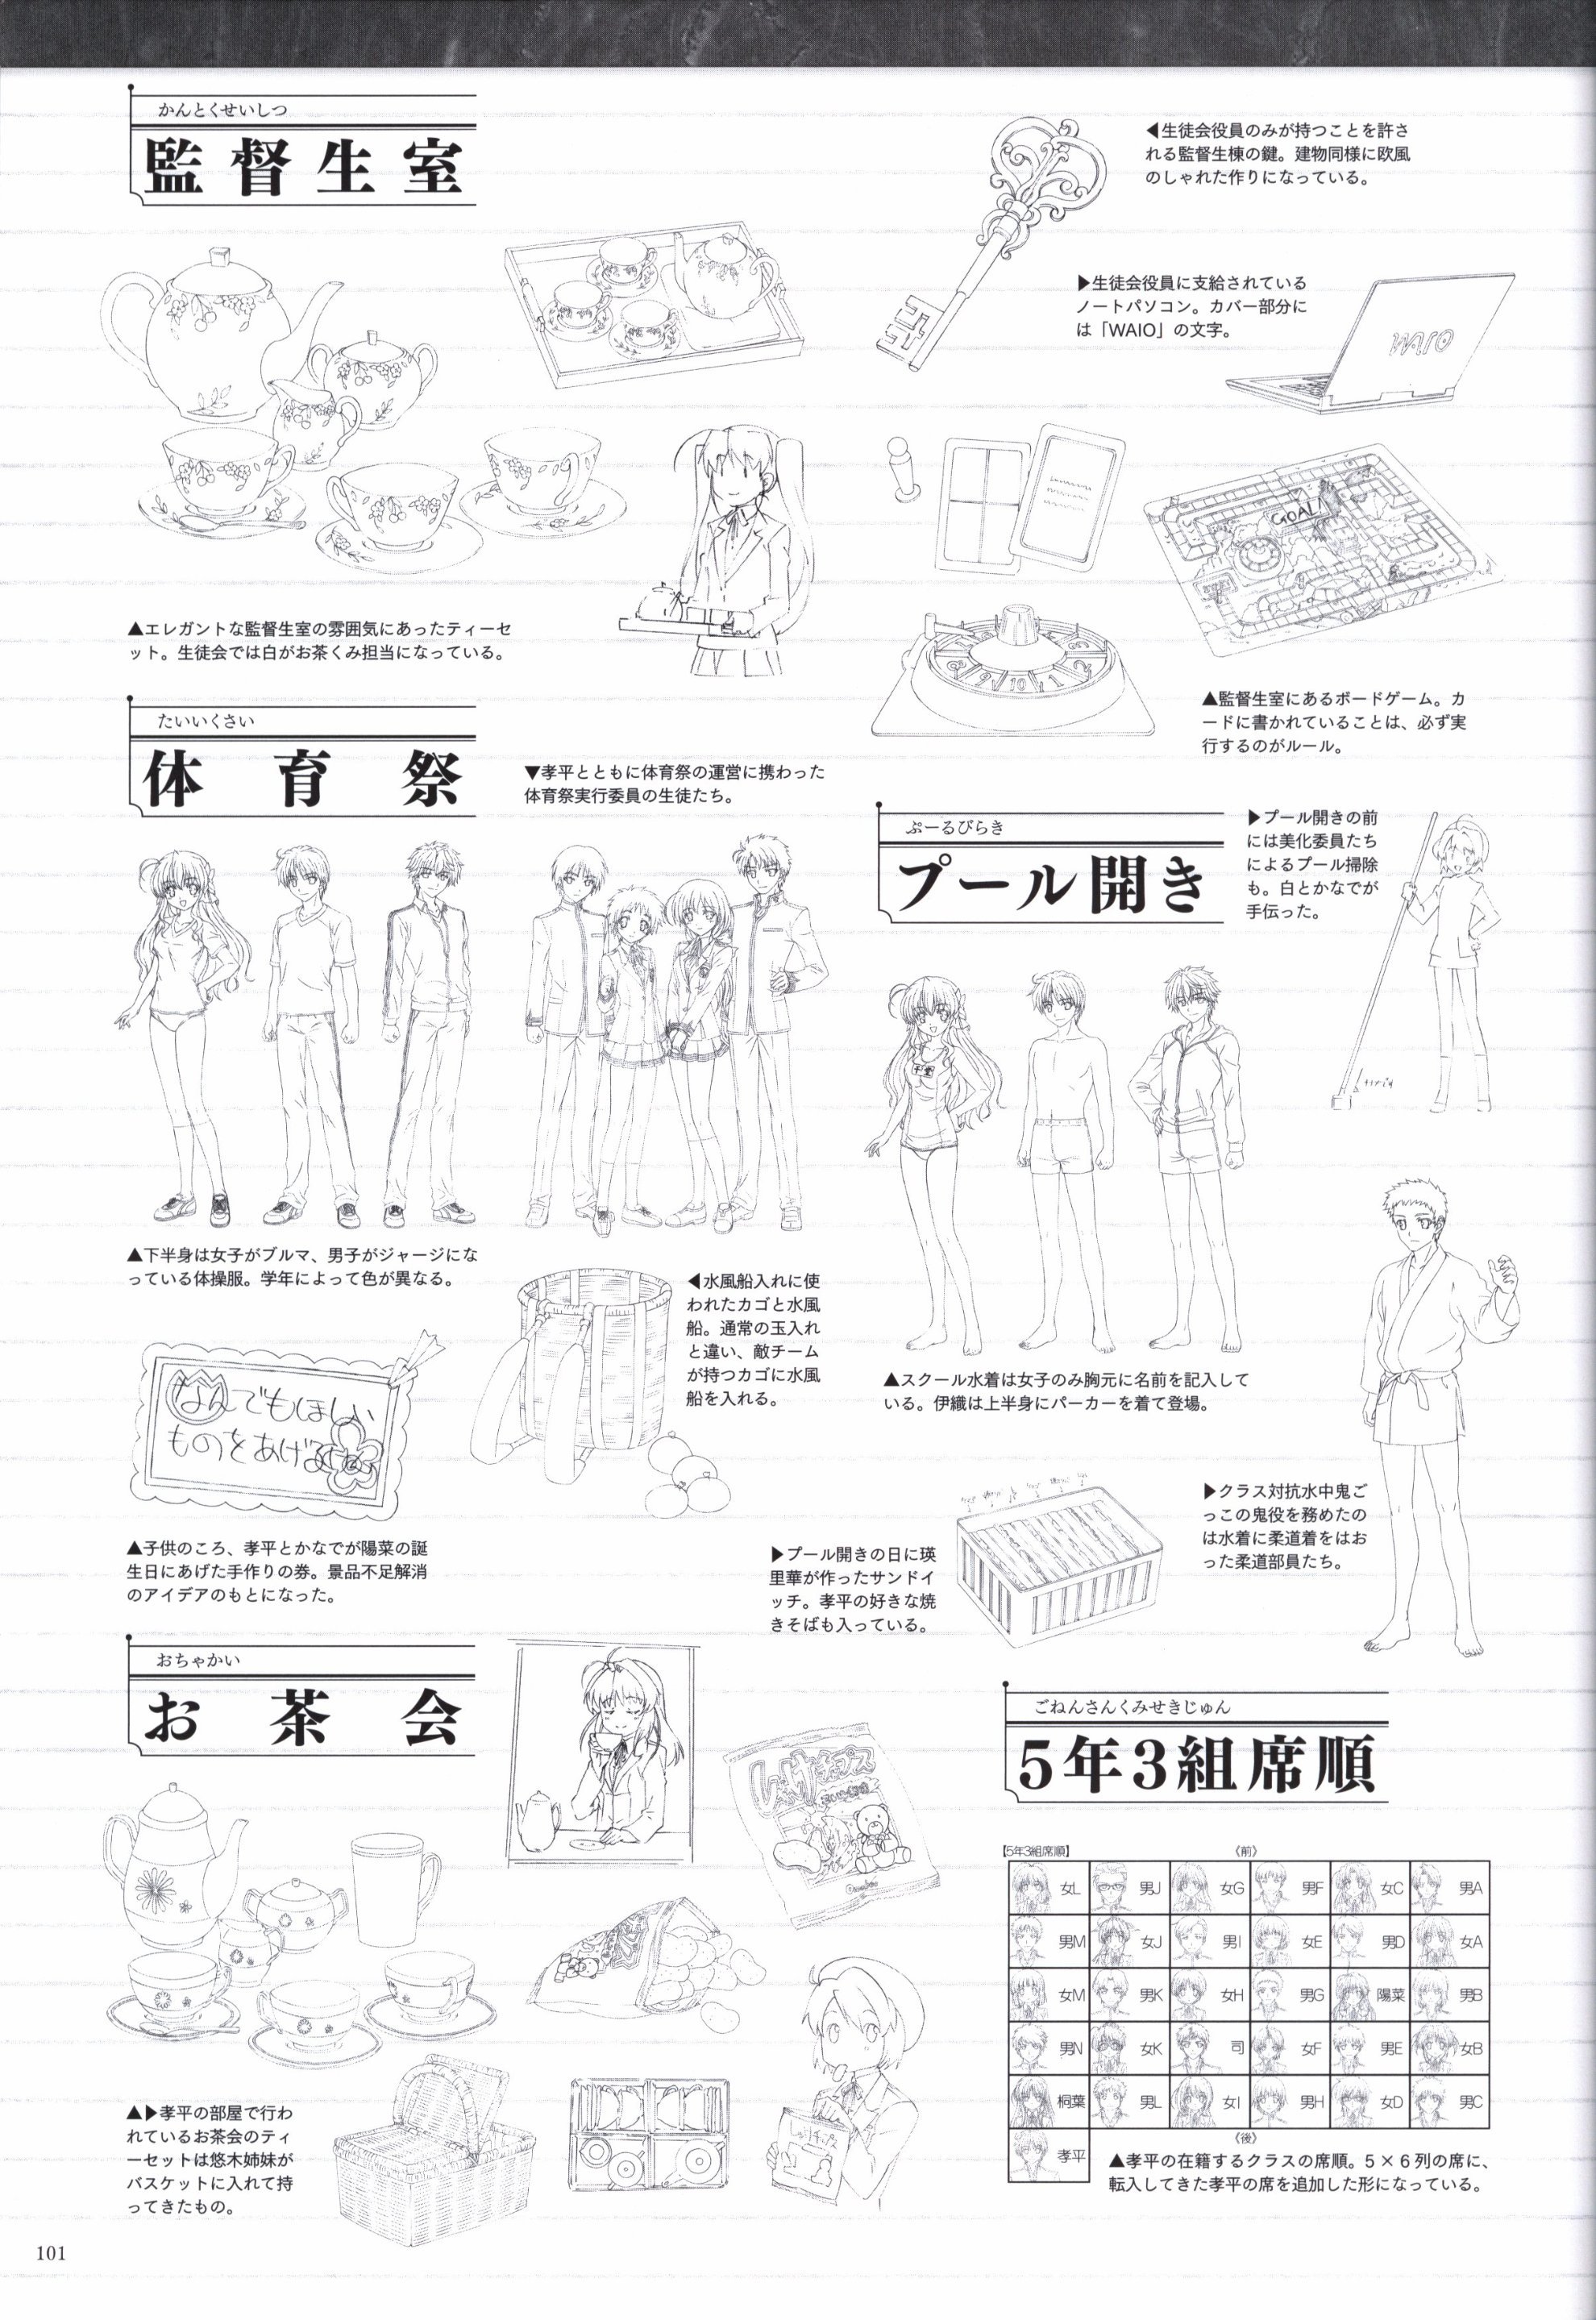 かんとくせいしつ
監督生室
◀生徒会役員のみが持つことを許さ
れる監督生棟の鍵。建物同様に欧風
のしゃれた作りになっている。
▶生徒会役員に支給されている
ノートパソコン。カバー部分に
は「WAIO」の文字。
WAIO
GOAL!
8
9
10
1
2
3
▲エレガントな監督生室の雰囲気にあったティーセ
ット。生徒会では白がお茶くみ担当になっている。
▲監督生室にあるボードゲーム。カ
ードに書かれていることは、必ず実
行するのがルール。
たいいくさい
体育祭
▼孝平とともに体育祭の運営に携わった
体育祭実行委員の生徒たち。
▲下半身は女子がブルマ、男子がジャージにな
っている体操服。学年によって色が異なる。
◀水風船入れに使
われたカゴと水風
船。通常の玉入れ
と違い、敵チーム
が持つカゴに水風
船を入れる。
なんでもほしい
ものをあげる
▲子供のころ、孝平とかなでが陽菜の誕
生日にあげた手作りの券。景品不足解消
のアイデアのもとになった。
ぷーるびらき
プール開き
▶プール開きの前
には美化委員たち
によるプール掃除
も。白とかなでが
手伝った。
千堂
▲スクール水着は女子のみ胸元に名前を記入して
いる。伊織は上半身にパーカーを着て登場。
▶クラス対抗水中鬼ご
っこの鬼役を務めたの
は水着に柔道着をはお
った柔道部員たち。
▶プール開きの日に瑛
里華が作ったサンドイ
ッチ。孝平の好きな焼
きそばも入っている。
おちゃかい
お茶会
チップス
▲▶孝平の部屋で行わ
れているお茶会のティ
ーセットは悠木姉妹が
バスケットに入れて持
ってきたもの。
ごねんさんくみせきじゅん
5年3組席順
【5年3組席順】
《前》
女L 男J 女G 男F 女C 男A
男M 女J 男I 女E 男D 女A
女M 男K 女H 男G 陽菜 男B
男N 女K 司 女F 男E 女B
桐葉 男L 女I 男H 女D 男C
孝平
《後》
▲孝平の在籍するクラスの席順。5×6列の席に、
転入してきた孝平の席を追加した形になっている。
101